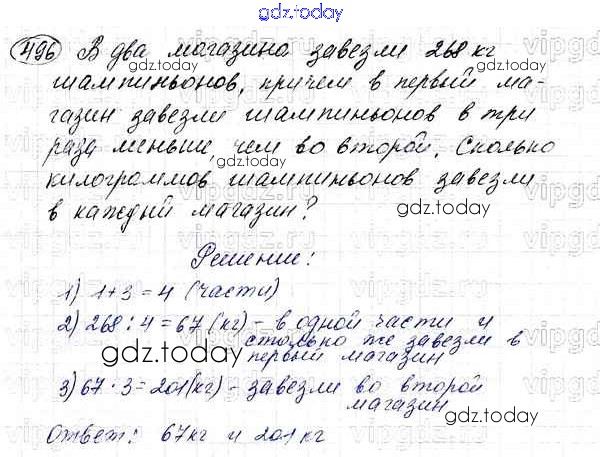 gdz.today
496 В два магазина завезли 268 кг
шампиньонов, причем в первый ма-
газин завезли шампиньонов в три
раза меньше чем во второй. Сколько
gdz.today
килограммов шампиньонов завезли
в каждый магазин?
gdz.today
Решение:
1) 1+3=4 (части)
2) 268:4=67 (кг) - в одной части и
столько же завезли в
gdz.today
первый магазин
3) 67·3=201(кг) - завезли во второй
магазин
gdz.today
Ответ: 67кг и 201 кг